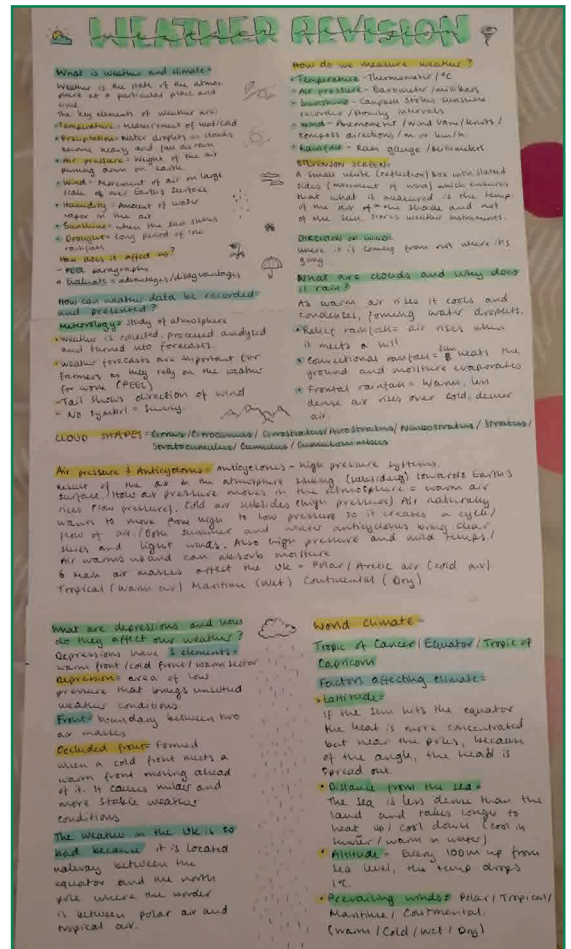 WEATHER REVISION
What is weather and climate =
Weather is the state of the atmos
phere at a particular place and
time.
The key elements of weather are:
• Temperature = Measurement of hot/cold
• Precipitation = Water droplets in clouds
become heavy and fall as rain
• Air pressure = Weight of the air
pushing down on earth
• Wind = Movement of air on large
scale of over Earth's surface
• Humidity = Amount of water
vapor in the air
• Sunshine = when the sun shows
• Drought = Long period of low
rainfall
How does it affect us?
- PEEL paragraphs
• Evaluate = advantages/disadvantages
How can weather data be recorded
and presented?
Meterology = study of atmosphere
• Weather is collected, processed analysed
and turned into forecasts.
• Weather forecasts are important for
farmers as they rely on the weather
for work (PEEL)
- Tail shows direction of wind
- No symbol = Sunny.
How do we measure weather?
• Temperature - Thermometer / °C
• Air pressure - Barometer / millibars
• Sunshine - Campbell Stokes sunshine
recorder / hourly intervals
• Wind - Anemometer / wind vane / knots /
compass directions / m or km/h
• Rainfall - Rain gauge / millimeters
STEVENSON SCREEN:
A small white (reflection) box with slatted
sides (movement of wind) which ensures
that what is measured is the temp.
of the air in the shade and not
of the sun. Stores weather instruments.
DIRECTION OF WIND:
where it is coming from not where its
going
What are clouds and why does
it rain?
As warm air rises it cools and
condenses, forming water droplets.
• Relief rainfall = air rises when
it meets a hill
• Convectional rainfall = sun heats the
ground and moisture evaporates
• Frontal rainfall = Warm, less
dense air rises over cold, denser
air.
CLOUD SHAPES = Cirrus / Cirrocumulus / Cirrostratus / Altostratus / Nimbostratus / Stratus /
Stratocumulus / Cumulus / Cumulonimbus
Air pressure & Anticyclones = Anticyclones - high pressure systems.
Result of the air in the atmosphere sinking (subsiding) towards Earth's
surface. How air pressure moves in the atmosphere = warm air
rises (low pressure). Cold air subsides (high pressure) Air naturally
wants to move from high to low pressure so it creates a cycle/
flow of air. / Both summer and winter anticyclones bring clear
skies and light winds. Also high pressure and mild temps /
Air warms up and can absorb moisture
6 main air masses affect the UK = Polar / Arctic air (cold air)
Tropical (Warm air) Maritime (Wet) Continental (Dry)
What are depressions and how
do they affect our weather?
Depressions have 3 elements =
warm front / cold front / warm sector
Depression = area of low
pressure that brings unsettled
weather conditions.
Front = boundary between two
air masses
Occluded front = Formed
when a cold front meets a
warm front moving ahead
of it. It causes milder and
more stable weather
conditions
The weather in the UK is so
bad because it is located
halfway between the
equator and the north
pole where the border
is between polar air and
tropical air.
World climate =
Tropic of Cancer / Equator / Tropic of
Capricorn
Factors affecting climate =
• Latitude =
If the sun hits the equator
the heat is more concentrated
but near the poles, because
of the angle, the head is
spread out.
• Distance from the sea =
The sea is less dense than the
land and takes longer to
heat up / cool down (cool in
summer / warm in winter)
• Altitude = Every 100m up from
sea level, the temp drops
1°C.
• Prevailing winds = Polar / Tropical /
Maritime / Continental.
(Warm / Cold / Wet / Dry)